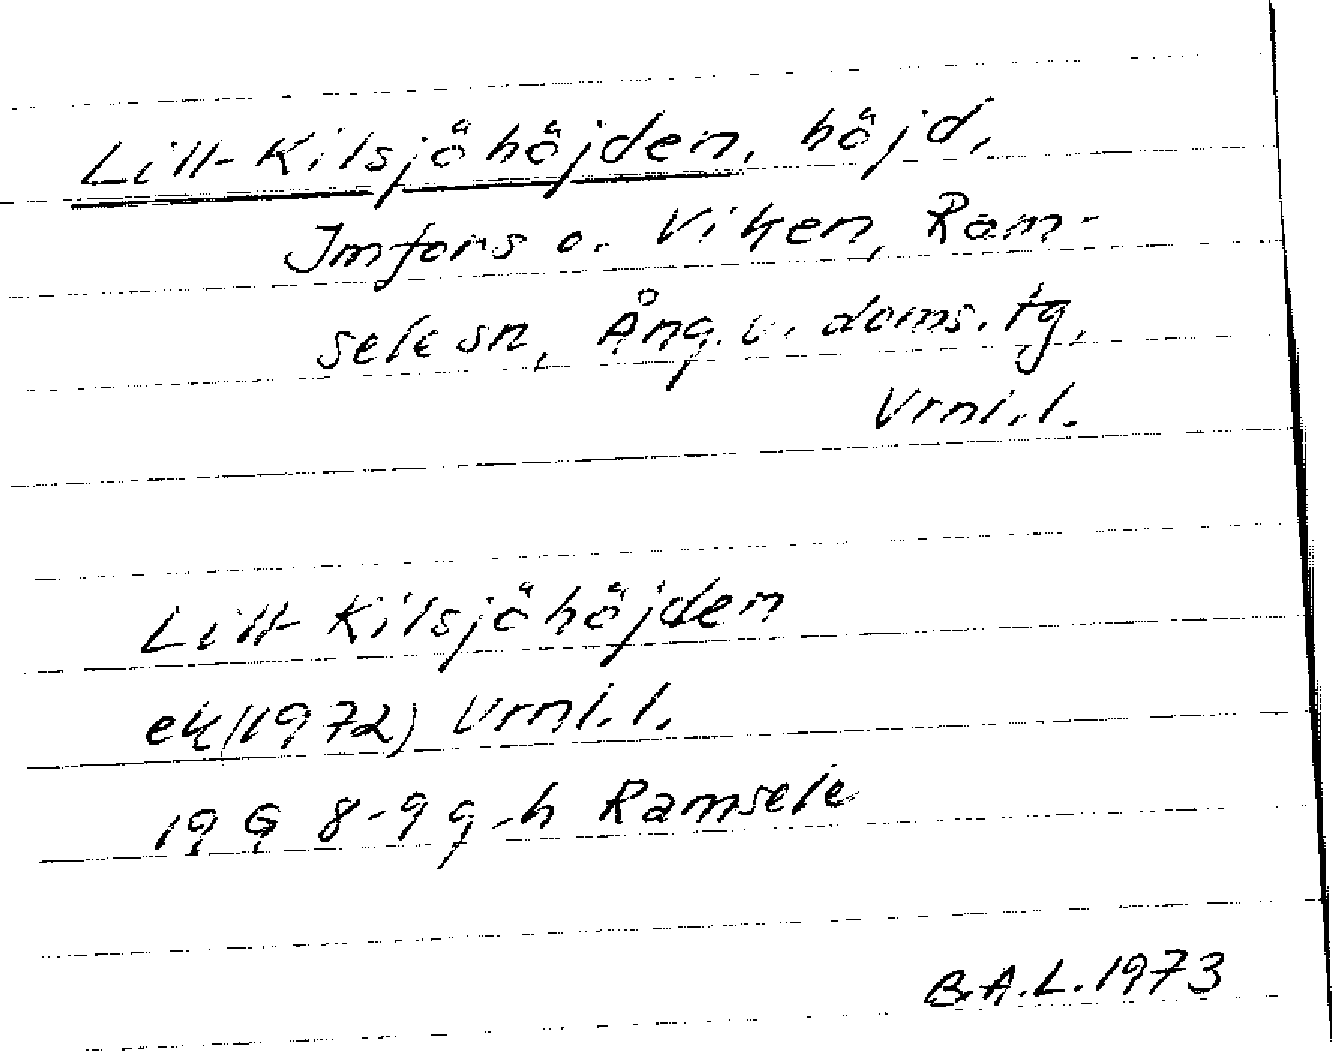 Lill-Kilsjöhöjden, höjd,
Imfors o. Viken, Ram-
sele sn, Ång. v. doms. tg,
Vrnl.l.
Lill-Kilsjöhöjden
ek(1972) Vrnl.l.
19 G 8-9 g-h Ramsele
B.A.L. 1973